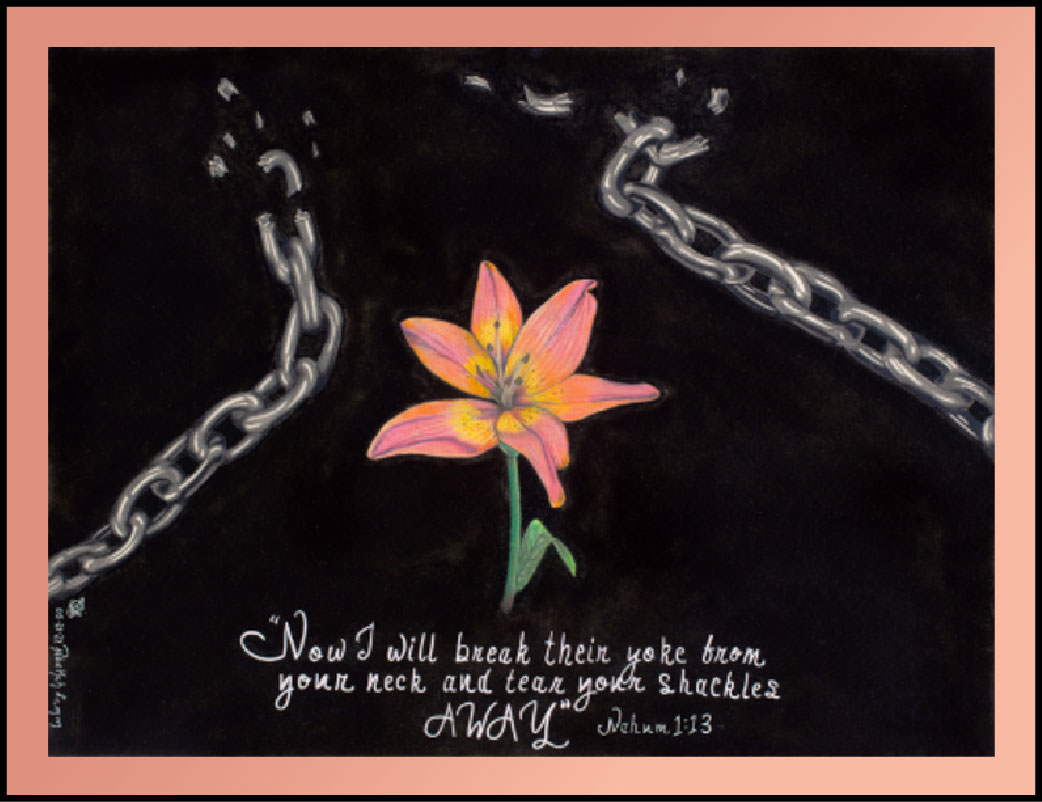 "Now I will break their yoke from
your neck and tear your shackles
AWAY" Nahum 1:13